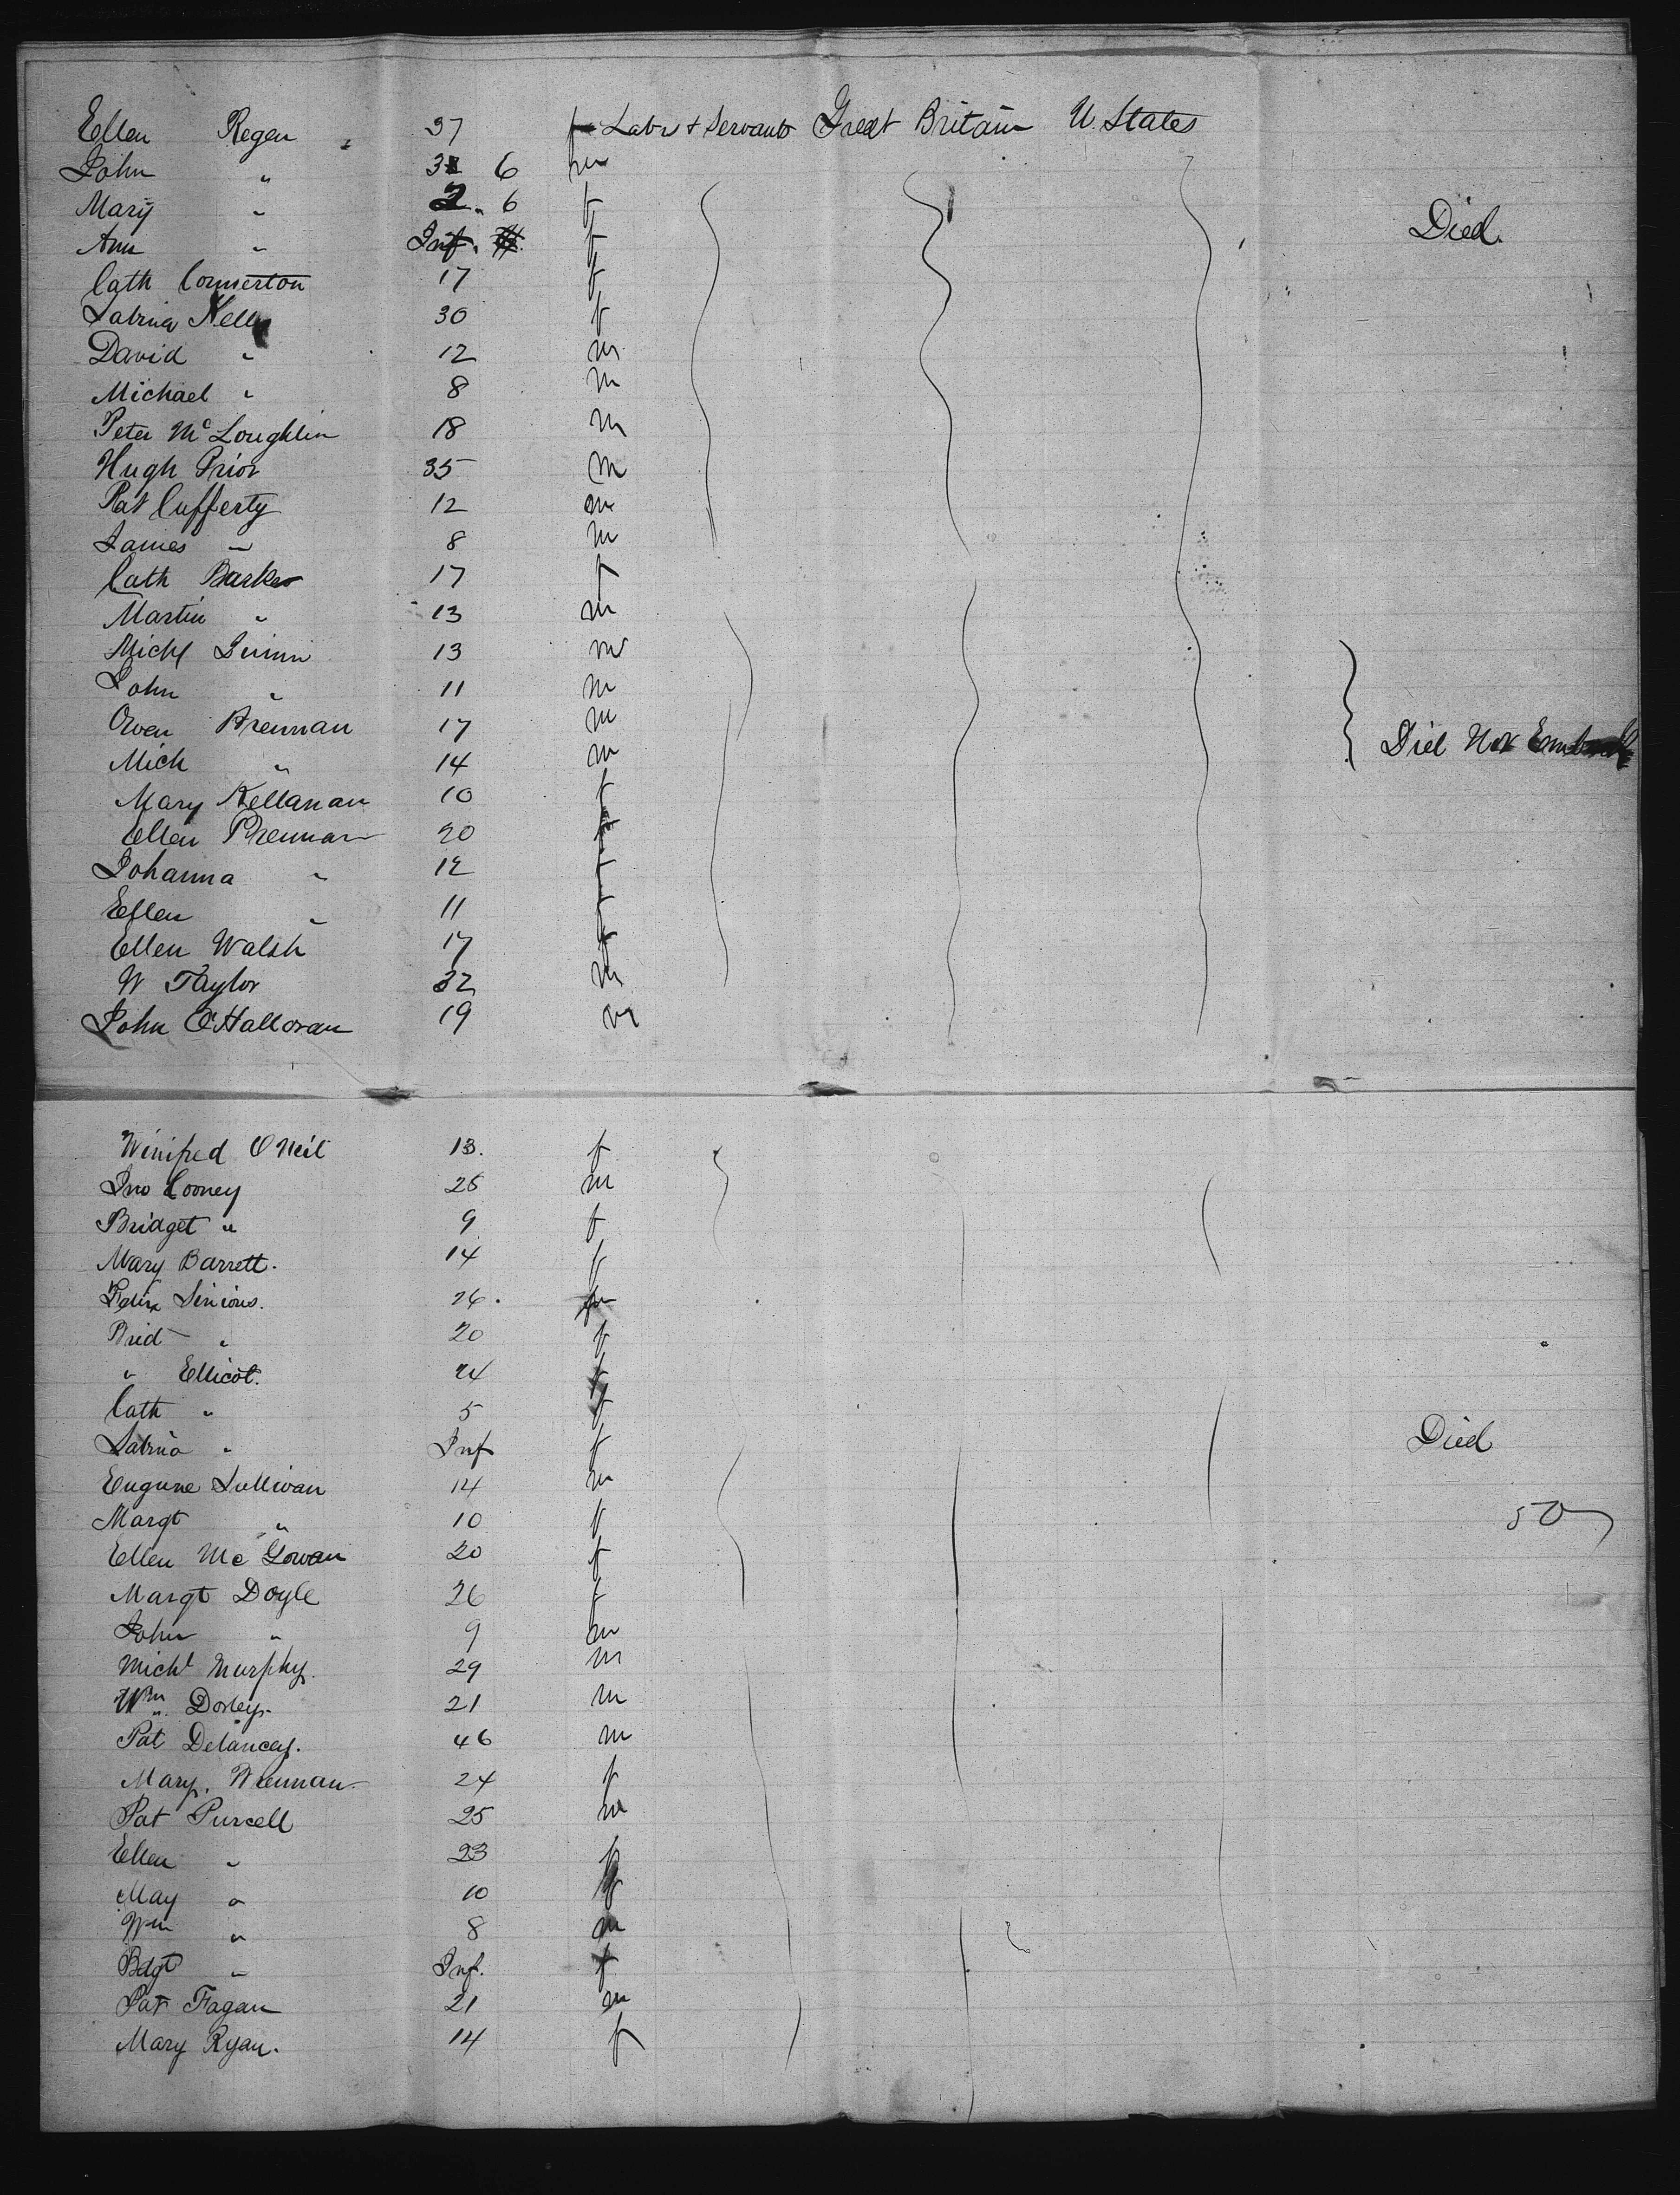 Ellen Regan 37 f Labr & Servants Great Britain U. States
John " 3 6 m
Mary " 2. 6 f
Ann " Inf. f Died.
Cath Connerton 17 f
Sabina Kelly 30 f
David " 12 m
Michael " 8 m
Peter McLoughlin 18 m
Hugh Prior 35 m
Pat Cufferty 12 m
James " 8 m
Cath Barker 17 f
Martin " 13 m
Michl 13 m
John " 11 m
Owen Brennan 17 m
Mich " 14 m Did Not Embark
Mary Kellanan 10 f
Ellen Brennan 20 f
Johanna " 12 f
Ellen " 11 f
Ellen Walsh 17 f
W Taylor 32 m
John O'Halloran 19 m
Winifred O Neil 13. f
Jno Cooney 25 m
Bridget " 9 f
Mary Barrett. 14 f
Felix 26.
Brid " 20 f
" Ellicot. 24 f
Cath " 5 f
Sabina " Inf f Died
Eugune Sullivan 14 m
Margt " 10 f 50
Ellen Mc Gowan 20 f
Margt Doyle 26 f
John " 9 m
Michl Murphy. 29 m
Wm. Dorley. 21 m
Pat Delancey. 46 m
Mary. Wrennan. 24 f
Pat Purcell 25 m
Ellen " 23 f
May " 10 f
Wm " 8 m
Bdgt " Inf. f
Pat Fagan 21 m
Mary Ryan. 14 f